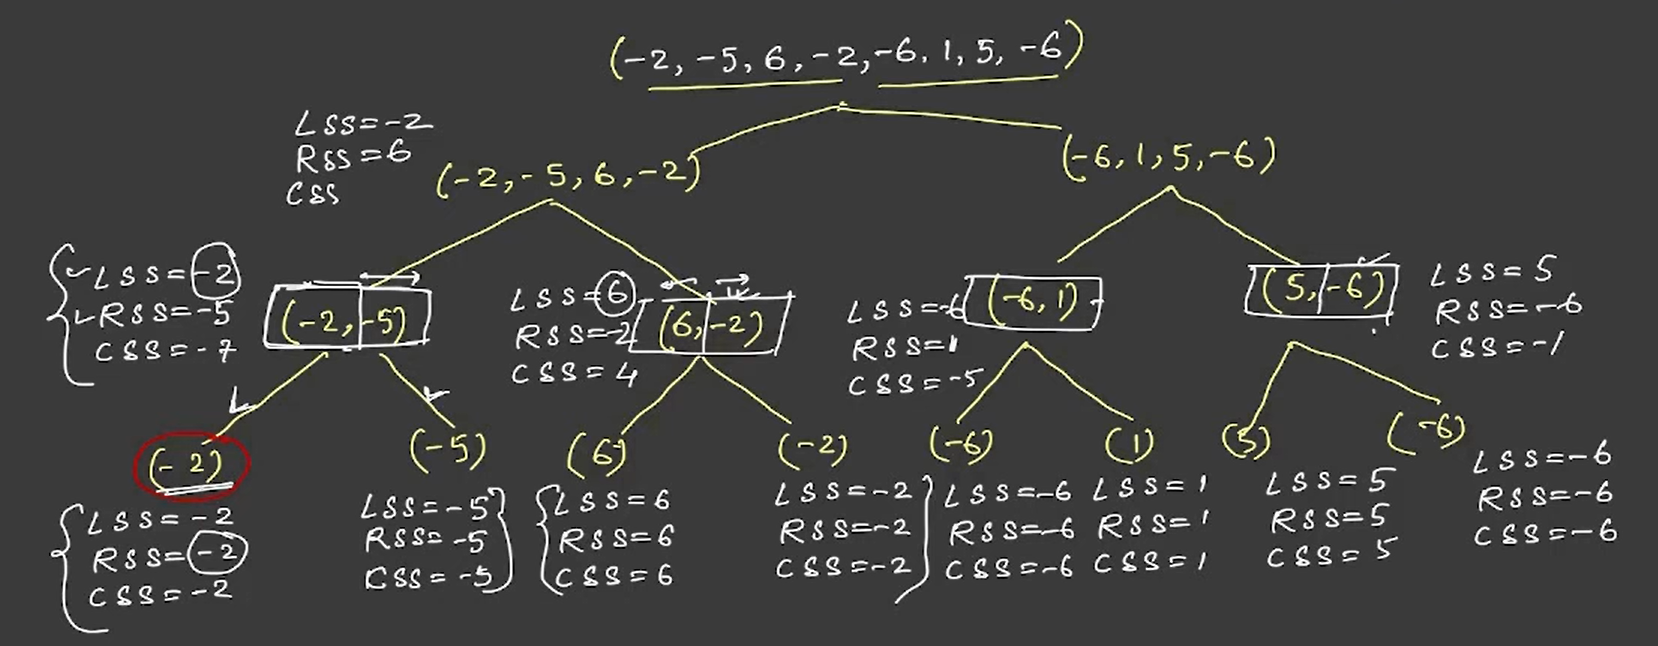 (-2, -5, 6, -2, -6, 1, 5, -6)
LSS=-2
RSS=6
CSS
(-2, -5, 6, -2)
(-6, 1, 5, -6)
LSS=-2
RSS=-5
CSS=-7
(-2, -5)
LSS=6
RSS=-2
CSS=4
(6, -2)
LSS=-6
RSS=1
CSS=-5
(-6, 1)
(5, -6)
LSS=5
RSS=-6
CSS=-1
(-2)
(-5)
(6)
(-2)
(-6)
(1)
(5)
(-6)
LSS=-2
RSS=-2
CSS=-2
LSS=-5
RSS=-5
CSS=-5
LSS=6
RSS=6
CSS=6
LSS=-2
RSS=-2
CSS=-2
LSS=-6
RSS=-6
CSS=-6
LSS=1
RSS=1
CSS=1
LSS=5
RSS=5
CSS=5
LSS=-6
RSS=-6
CSS=-6